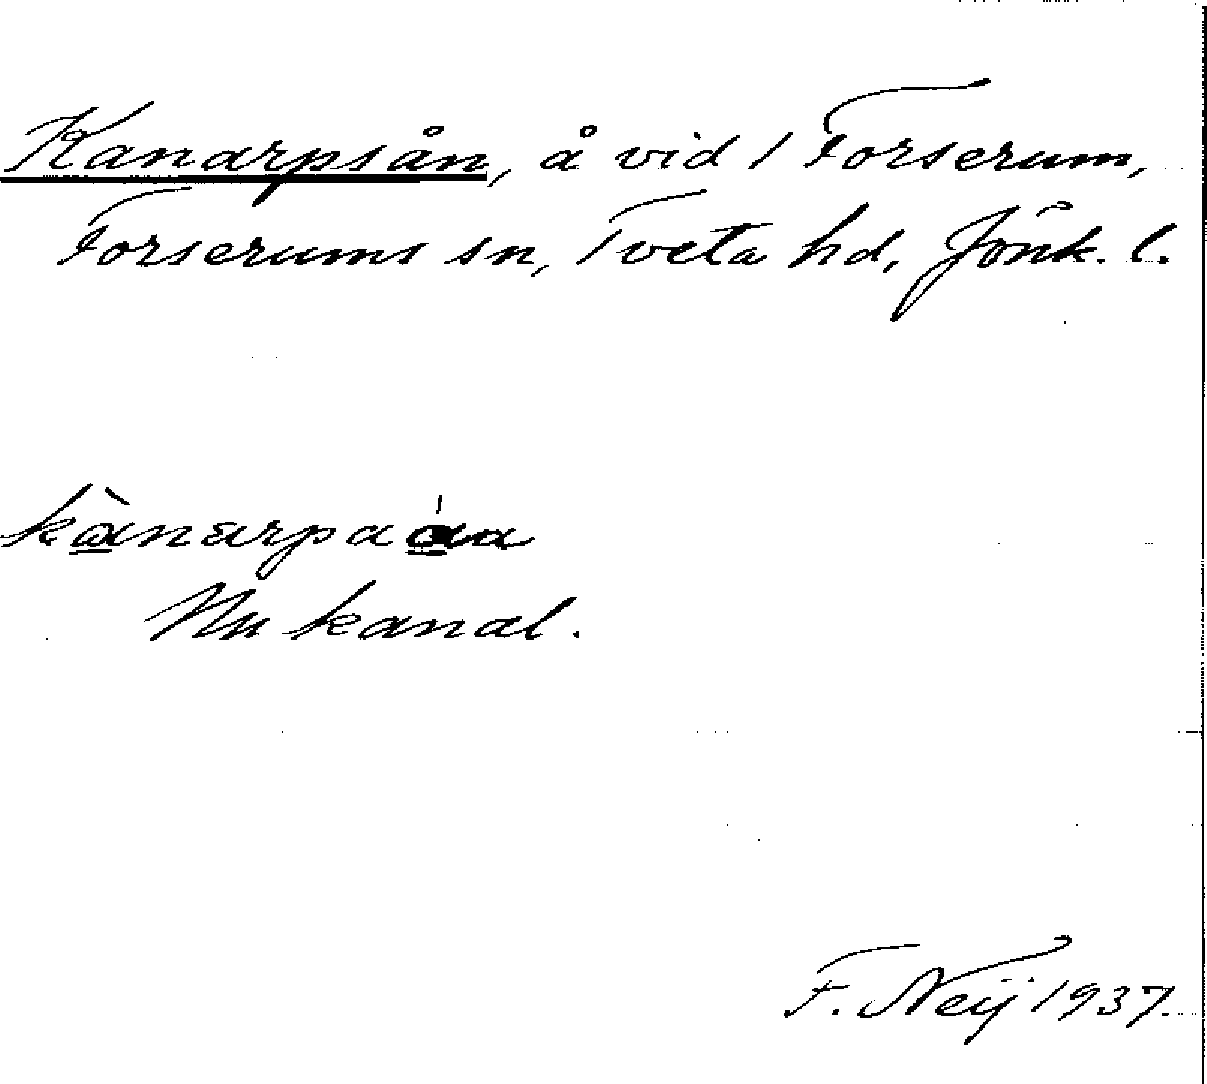 Kanarpsån, å vid / Forserum,
Forserums sn, Tveta hd, Jönk. l.
Nu kanal.
F. Neij 1937.